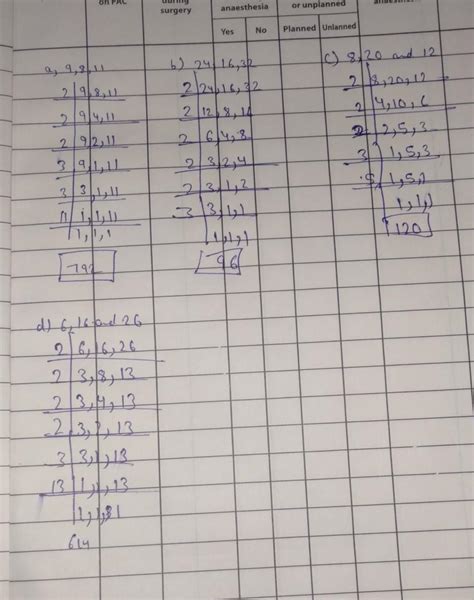 on PAC
during
surgery
anaesthesia
or unplanned
Yes
No
Planned
Unlanned
a, 9,8,11
2 | 9,8,11
2 | 9,4,11
2 | 9,2,11
3 | 9,1,11
3 | 3,1,11
11 | 1,1,11
1,1,1
792
b) 24,16,32
2 | 24,16,32
2 | 12,8,16
2 | 6,4,8
2 | 3,2,4
2 | 3,1,2
3 | 3,1,1
1,1,1
96
c) 8,20 and 12
2 | 8,20,12
2 | 4,10,6
2 | 2,5,3
3 | 1,5,3
5 | 1,5,1
1,1,1
120
d) 6,16 and 26
2 | 6,16,26
2 | 3,8,13
2 | 3,4,13
2 | 3,2,13
3 | 3,1,13
13 | 1,1,13
614